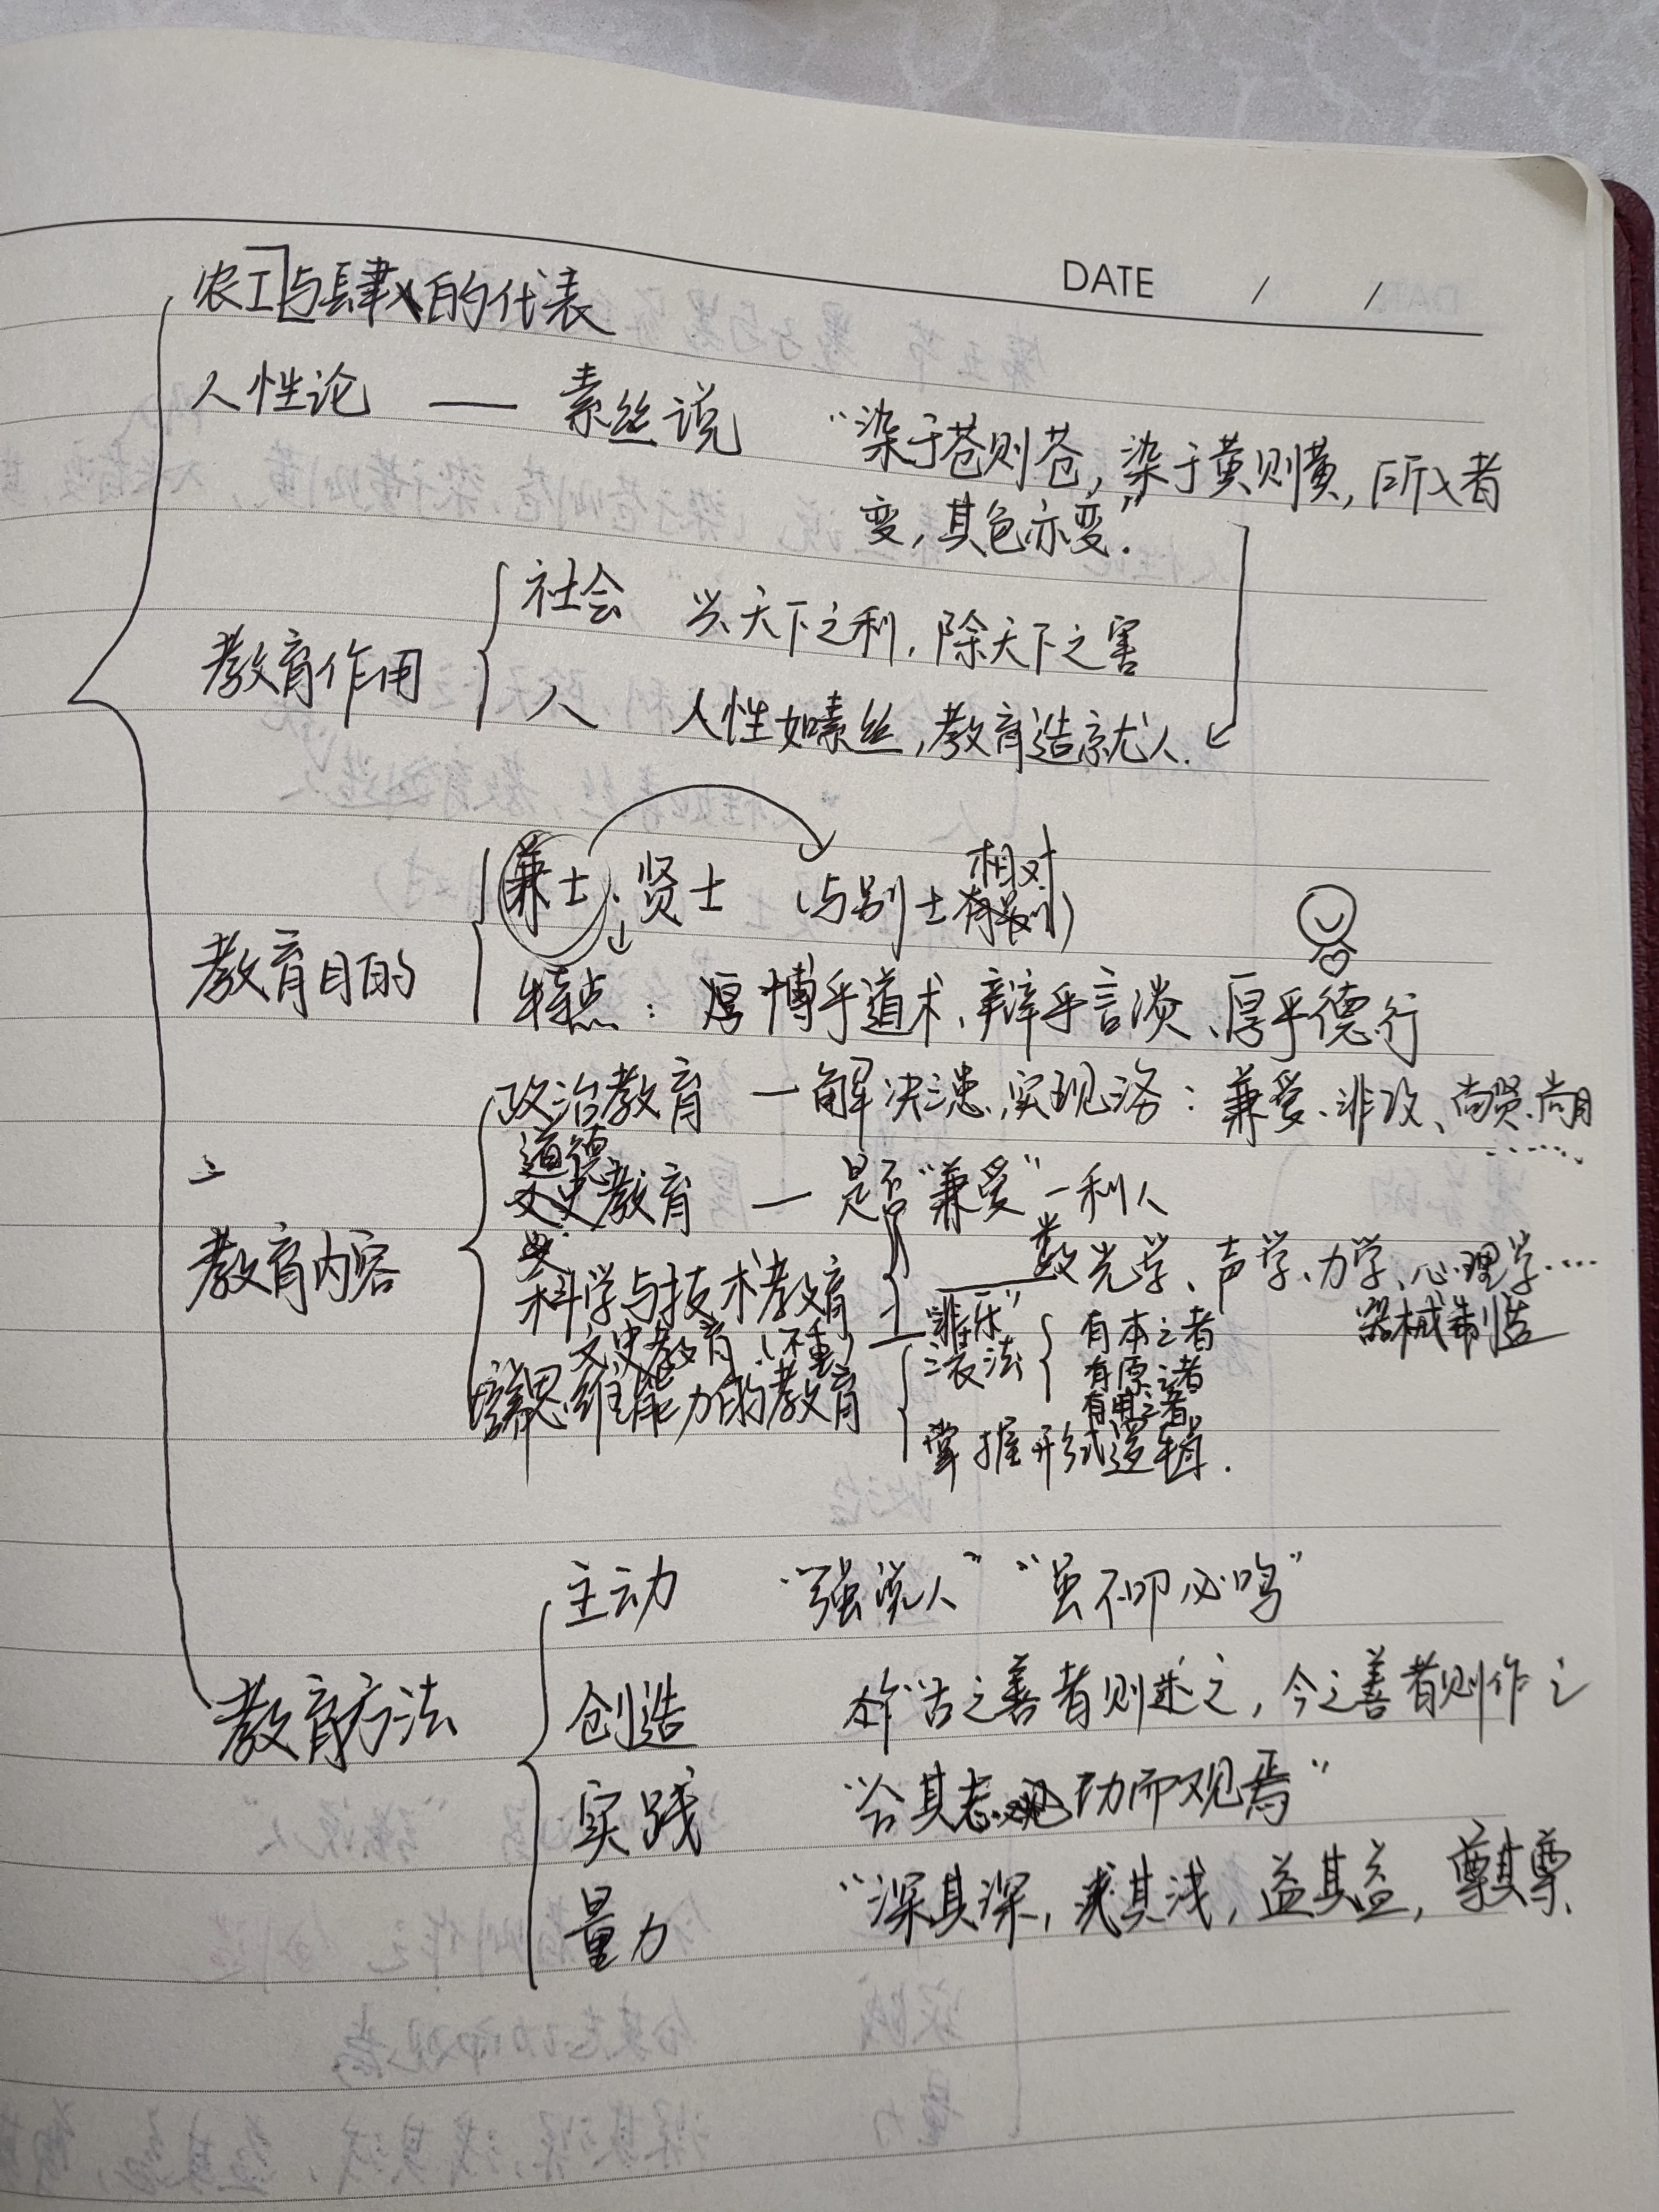 DATE / /
农工与肆人的代表
人性论 — 素丝说 “染于苍则苍,染于黄则黄,所入者
变,其色亦变”.
教育作用
社会 兴天下之利,除天下之害
人 人性如素丝,教育造就人.
相对
兼士、贤士 (与别士)
教育目的
特点: 博乎道术、辩乎言谈、厚乎德行
政治教育 — 解决患,实现务: 兼爱、非攻、尚贤、尚同
道德
文史教育 — 是否“兼爱” — 利人
教育内容
科学与技术教育 数 光学、声学、力学、心理学....
器械制造
文史教育(不重) “非乐”
培养思维能力的教育
三表法
有本之者
有原之者
有用之者
掌握形式逻辑.
主动 “强说人” “虽不叩必鸣”
教育方法
创造 古之善者则述之,今之善者则作之
实践 “合其志功而观焉”
量力 “深其深,浅其浅,益其益,尊其尊